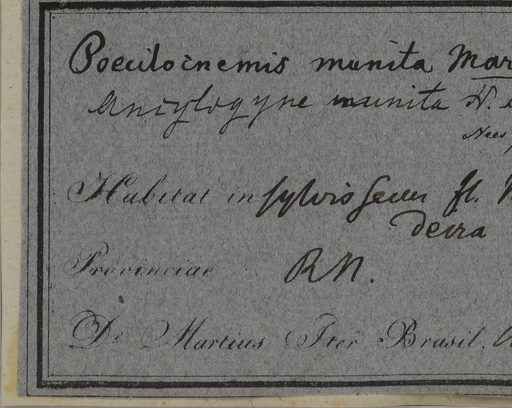 Poecilocnemis munita Mar
Ancylogyne munita N. e
Nees
Habitat in sylvis secus fl. M
deira
Provinciae R N.
Dr. Martius Iter Brasil.